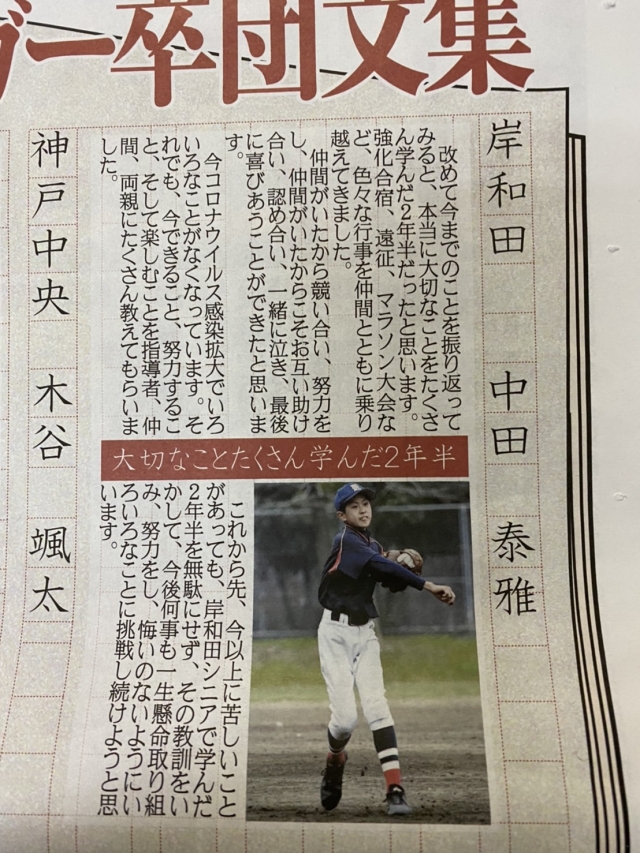 ー卒団文集
岸和田　中田　泰雅
改めて今までのことを振り返って
みると、本当に大切なことをたくさ
ん学んだ２年半だったと思います。
強化合宿、遠征、マラソン大会な
ど、色々な行事を仲間とともに乗り
越えてきました。
仲間がいたから競い合い、努力を
し、仲間がいたからこそお互い助け
合い、認め合い、一緒に泣き、最後
に喜びあうことができたと思いま
す。
今コロナウイルス感染拡大でいろ
いろなことがなくなっています。そ
れでも、今できること、努力するこ
と、そして楽しむことを指導者、仲
間、両親にたくさん教えてもらいま
した。
大切なことたくさん学んだ2年半
これから先、今以上に苦しいこと
があっても、岸和田シニアで学んだ
２年半を無駄にせず、その教訓をい
かして、今後何事も一生懸命取り組
み、努力をし、悔いのないようにい
ろいろなことに挑戦し続けようと思
います。
神戸中央　木谷　颯太